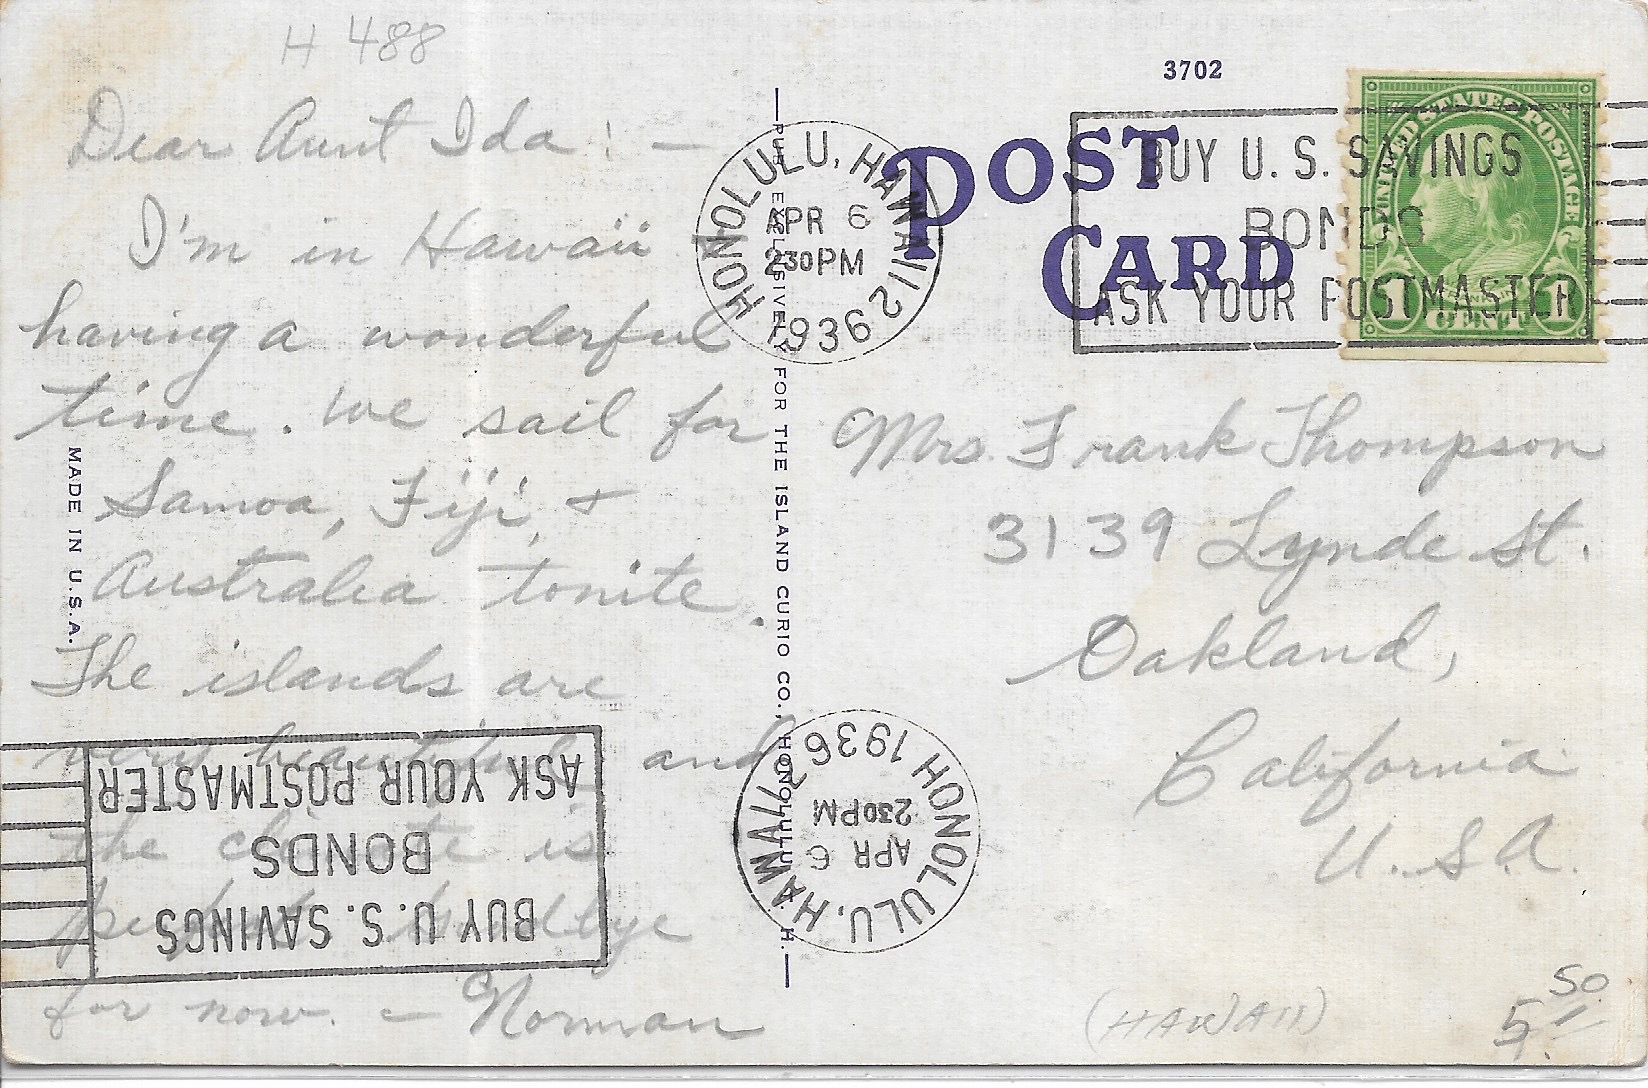 H 488
Dear Aunt Ida: –
I'm in Hawaii
having a wonderful
time. We sail for
Samoa, Fiji, &
Australia tonite.
The islands are
very beautiful and
the climate is
perfect. Goodbye
for now. – Norman
MADE IN U.S.A.
PUB. EXCLUSIVELY FOR THE ISLAND CURIO CO., HONOLULU, T. H.
3702
POST
CARD
HONOLULU, HAWAII 2
APR 6
2 30 PM
1936
BUY U. S. SAVINGS
BONDS
ASK YOUR POSTMASTER
UNITED STATES POSTAGE
1 1
CENT
Mrs. Frank Thompson
3139 Lynde St.
Oakland,
California
U.S.A.
HONOLULU, HAWAII 2
APR 6
2 30 PM
1936
BUY U. S. SAVINGS
BONDS
ASK YOUR POSTMASTER
(HAWAII)
5.50